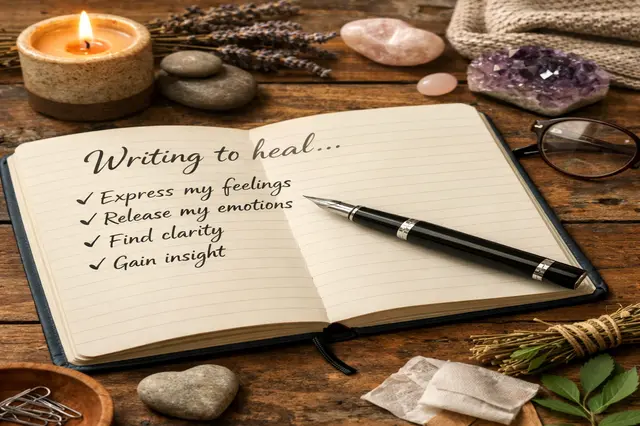 Writing to heal...
✓ Express my feelings
✓ Release my emotions
✓ Find clarity
✓ Gain insight